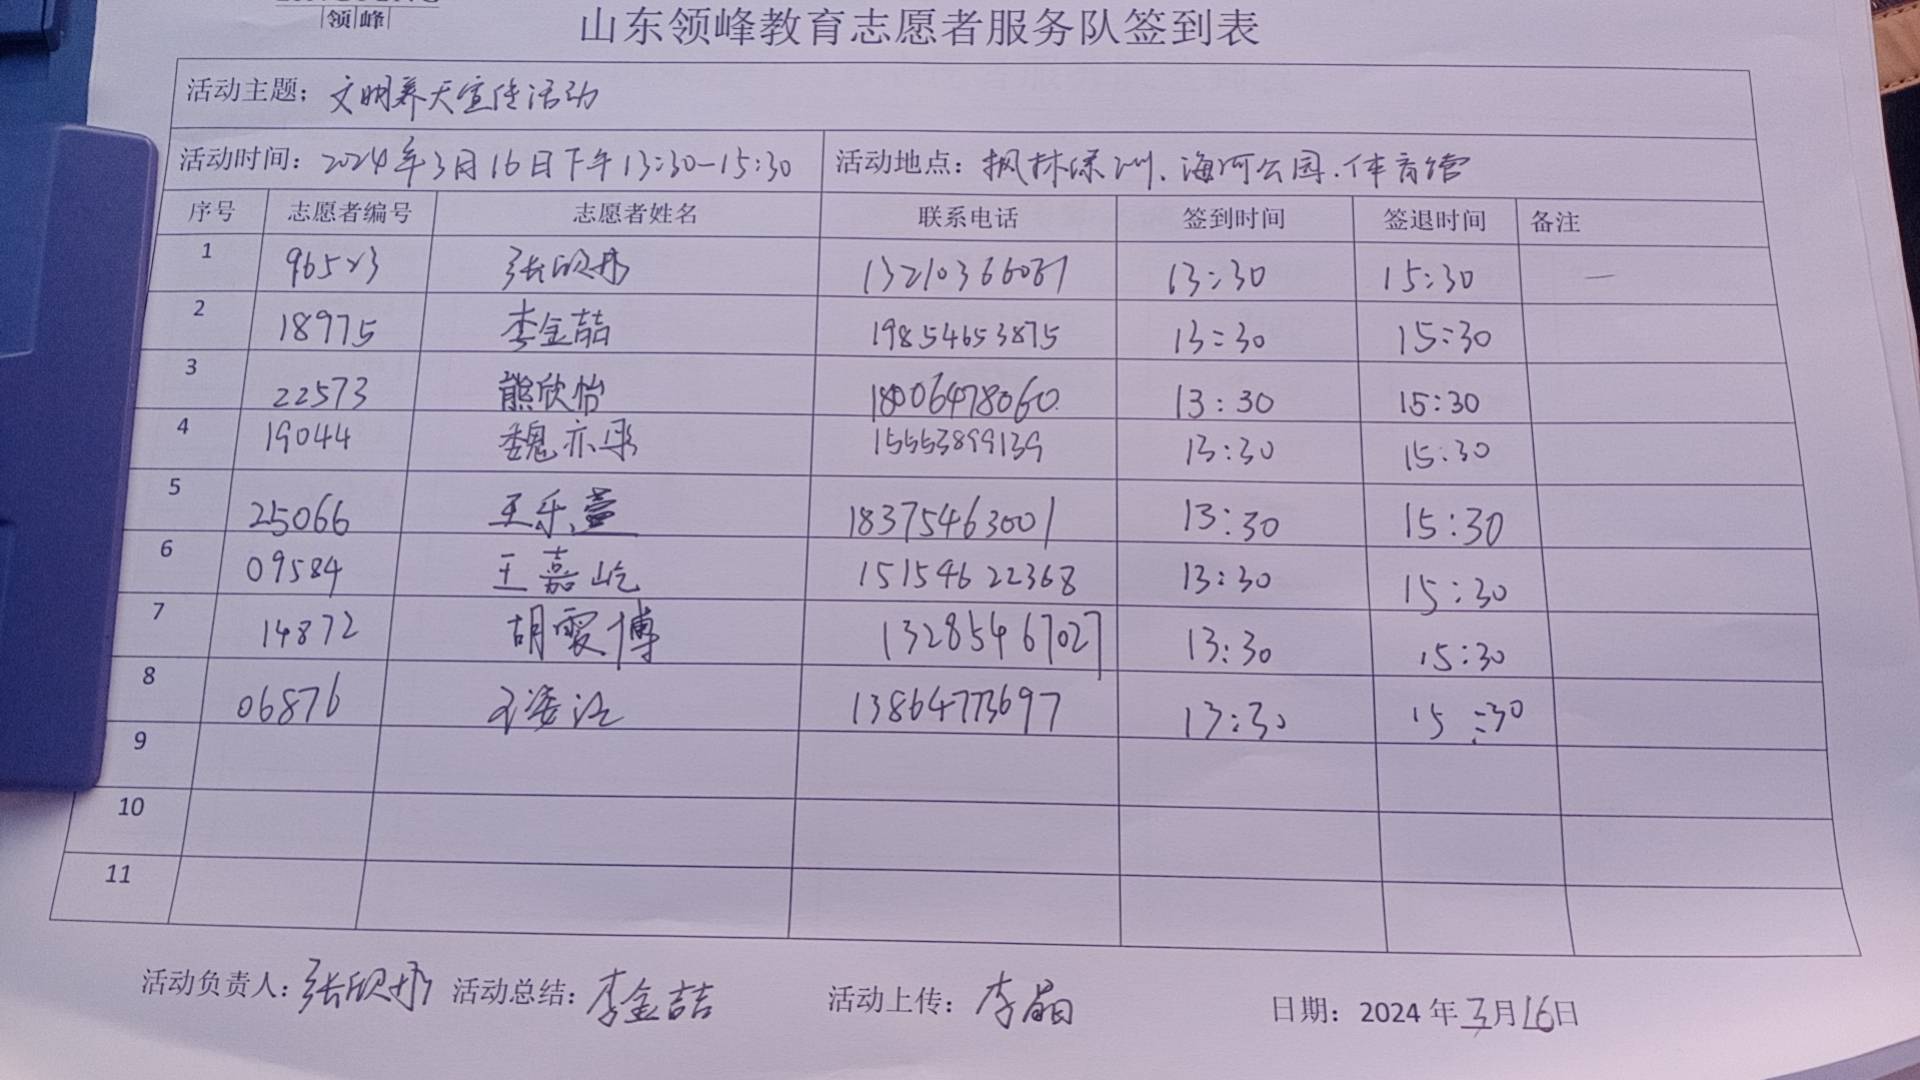 领峰
山东领峰教育志愿者服务队签到表
活动主题; 文明养犬宣传活动
活动时间: 2024年3月16日下午13:30-15:30 活动地点: 枫林绿洲、海河公园.体育馆
序号 志愿者编号 志愿者姓名 联系电话 签到时间 签退时间 备注
1 96523 张欣 13:30 15:30 —
2 18975 李金喆 19854653875 13:30 15:30
3 22573 熊欣怡 18006478060 13:30 15:30
4 19044 魏亦彤 15553899139 13:30 15:30
5 25066 王乐萱 18375463001 13:30 15:30
6 09584 王嘉屹 15154622368 13:30 15:30
7 14872 胡雯博 13285467027 13:30 15:30
8 06876 13864773697 13:30 15:30
9
10
11
活动负责人: 张欣 活动总结: 李金喆 活动上传: 李晶 日期: 2024年3月16日